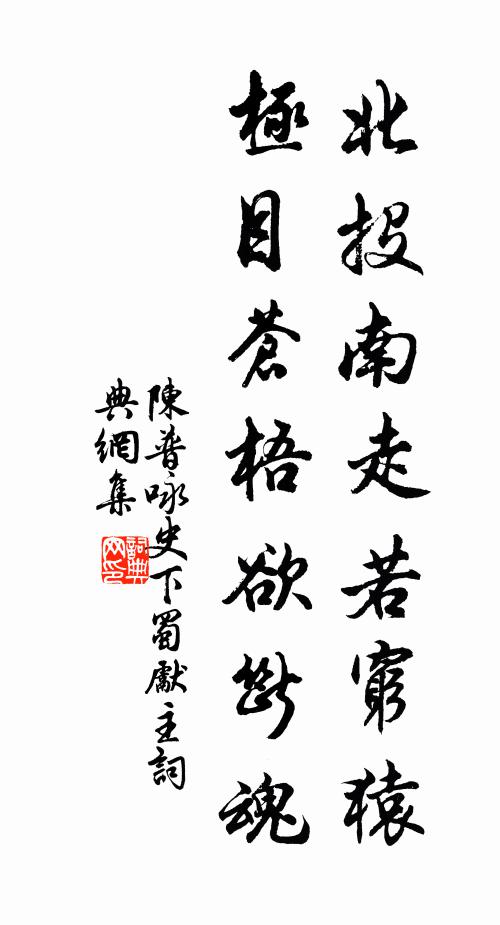 北投南走若窮猿
極目蒼梧欲斷魂
陳普詠史下蜀獻主詞
典網集
詞典
网印